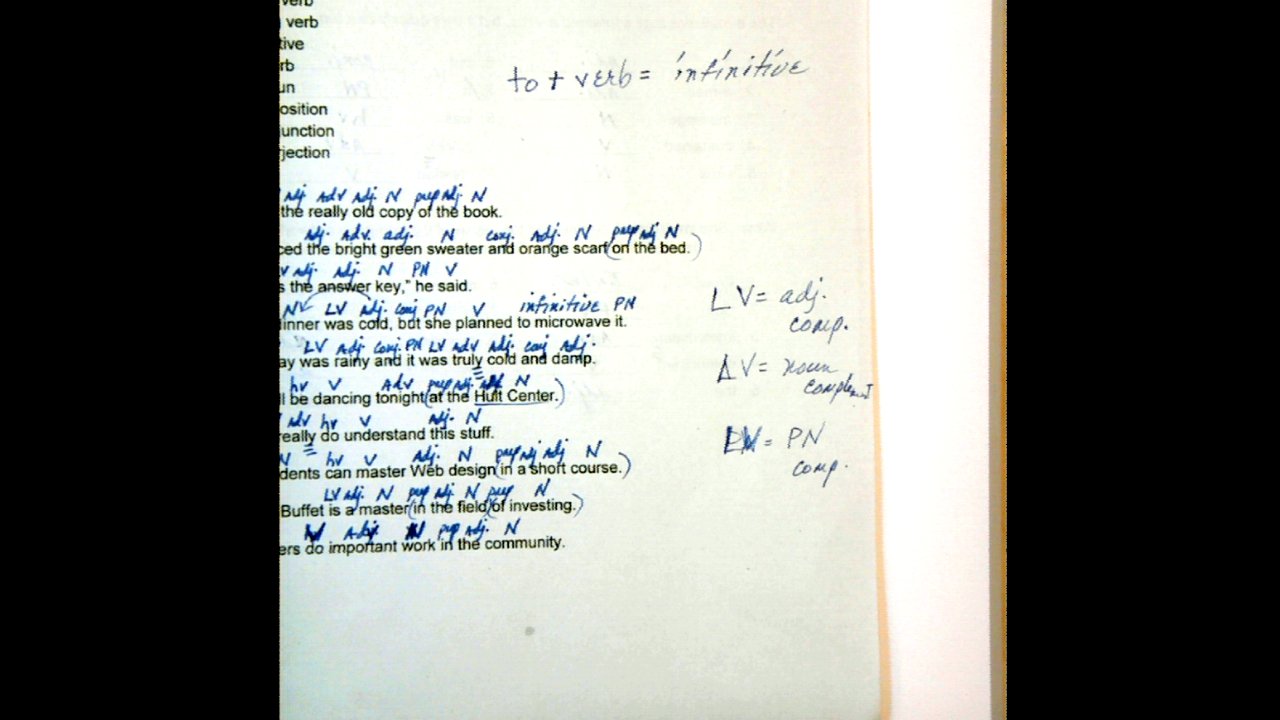 verb
verb
tive
rb
un
osition
junction
jection
to + verb = infinitive
Adj Adv Adj. N prep Adj. N
the really old copy of the book.
Adj. Adv. adj. N conj. Adj. N prep Adj N
ced the bright green sweater and orange scarf (on the bed.)
V Adj. Adj. N PN V
s the answer key,” he said.
N LV Adj. conj PN V infinitive PN
inner was cold, but she planned to microwave it.
LV Adj conj. PN LV adv Adj. conj Adj.
ay was rainy and it was truly cold and damp.
hv V Adv prep Adj. N
ll be dancing tonight (at the Hult Center.)
Adv hv V Adj. N
really do understand this stuff.
N hv V Adj. N prep Adj adj N
dents can master Web design (in a short course.)
LV adj. N prep adj N prep N
Buffet is a master (in the field) (of investing.)
Adj. N prep Adj. N
ers do important work in the community.
LV = adj.
comp.
AV = noun
complement
= PN
comp.